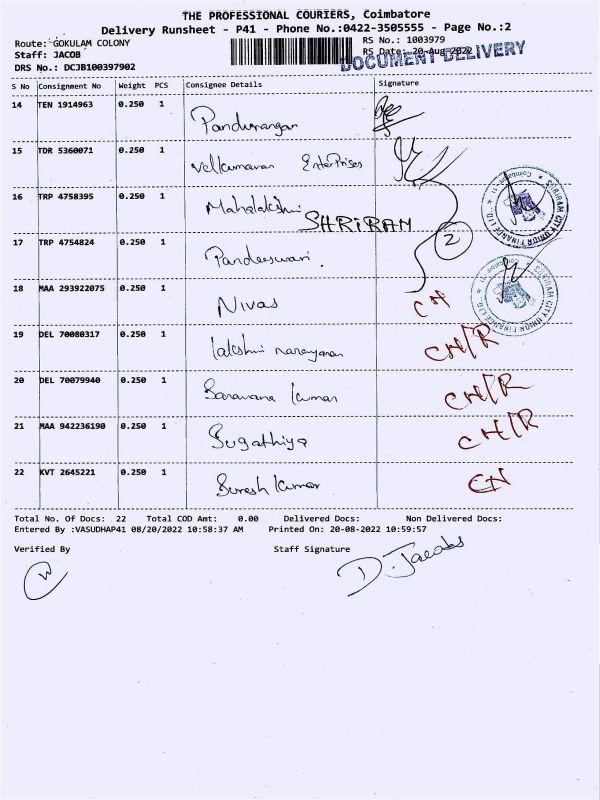 THE PROFESSIONAL COURIERS, Coimbatore
Delivery Runsheet - P41 - Phone No.:0422-3505555 - Page No.:2
Route: GOKULAM COLONY
RS No.: 1003979
Staff: JACOB
RS Date: 20-Aug-2022
DOCUMENT DELIVERY
DRS No.: DCJB100397902
S No Consignment No Weight PCS Consignee Details Signature
14 TEN 1914963 0.250 1 Pandurangan
15 TDR 5360071 0.250 1 Velkumaran Enterprises
16 TRP 4758395 0.250 1 Mahalakshmi
SHRIRAM
2
17 TRP 4754824 0.250 1 Pandeeswari.
SHRIRAM CITY UNION FINANCE LTD., Coimbatore
18 MAA 293922075 0.250 1 Nivas CH
SHRIRAM CITY UNION FINANCE LTD., Coimbatore
19 DEL 70080317 0.250 1 lakshmi narayanan CH/R
20 DEL 70079940 0.250 1 Saravana kumar CH/R
21 MAA 942236190 0.250 1 Sugathiya CH/R
22 KVT 2645221 0.250 1 Suresh kumar
Total No. Of Docs: 22 Total COD Amt: 0.00 Delivered Docs: Non Delivered Docs:
Entered By :VASUDHAP41 08/20/2022 10:58:37 AM Printed On: 20-08-2022 10:59:57
Verified By Staff Signature
D. Jacobs